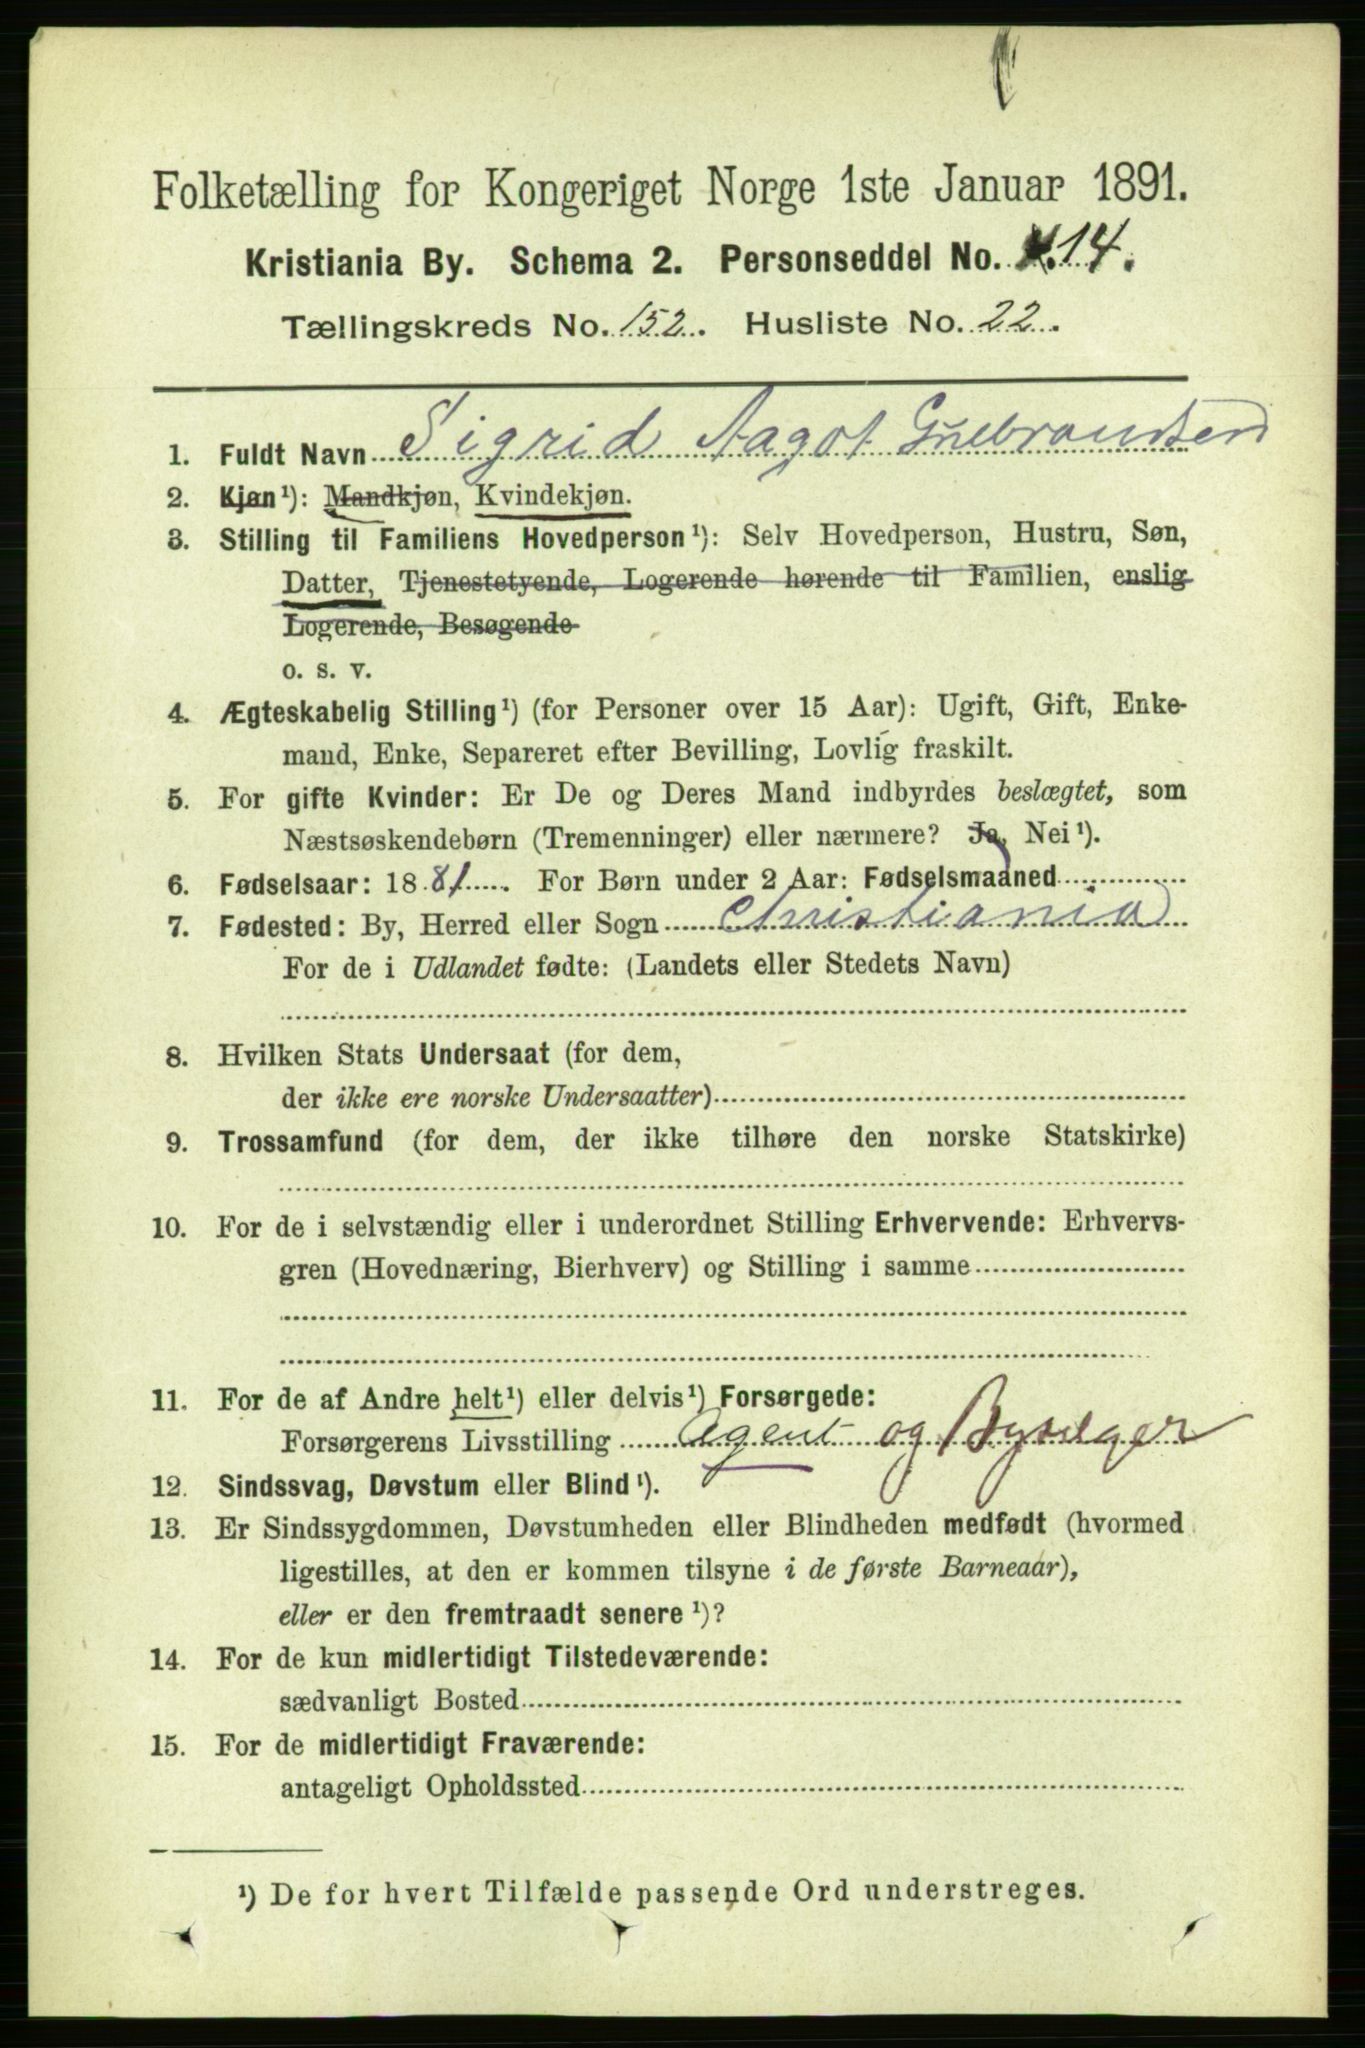 Folketælling for Kongeriget Norge 1ste Januar 1891.
Kristiania By. Schema 2. Personseddel No. 14.
Tællingskreds No. 152. Husliste No. 22.
1. Fuldt Navn Sigrid Aagot
2. Kjøn¹): Mandkjøn, Kvindekjøn.
3. Stilling til Familiens Hovedperson¹): Selv Hovedperson, Hustru, Søn,
Datter, Tjenestetyende, Logerende hørende til Familien, enslig
Logerende, Besøgende
o. s. v.
4. Ægteskabelig Stilling¹) (for Personer over 15 Aar): Ugift, Gift, Enke-
mand, Enke, Separeret efter Bevilling, Lovlig fraskilt.
5. For gifte Kvinder: Er De og Deres Mand indbyrdes beslægtet, som
Næstsøskendebørn (Tremenninger) eller nærmere? Ja, Nei¹).
6. Fødselsaar: 1881. For Børn under 2 Aar: Fødselsmaaned
7. Fødested: By, Herred eller Sogn Christiania
For de i Udlandet fødte: (Landets eller Stedets Navn)
8. Hvilken Stats Undersaat (for dem,
der ikke ere norske Undersaatter)
9. Trossamfund (for dem, der ikke tilhøre den norske Statskirke)
10. For de i selvstændig eller i underordnet Stilling Erhvervende: Erhvervs-
gren (Hovednæring, Bierhverv) og Stilling i samme
11. For de af Andre helt¹) eller delvis¹) Forsørgede:
Forsørgerens Livsstilling Agent og
12. Sindssvag, Døvstum eller Blind¹).
13. Er Sindssygdommen, Døvstumheden eller Blindheden medfødt (hvormed
ligestilles, at den er kommen tilsyne i de første Barneaar),
eller er den fremtraadt senere¹)?
14. For de kun midlertidigt Tilstedeværende:
sædvanligt Bosted
15. For de midlertidigt Fraværende:
antageligt Opholdssted
¹) De for hvert Tilfælde passende Ord understreges.